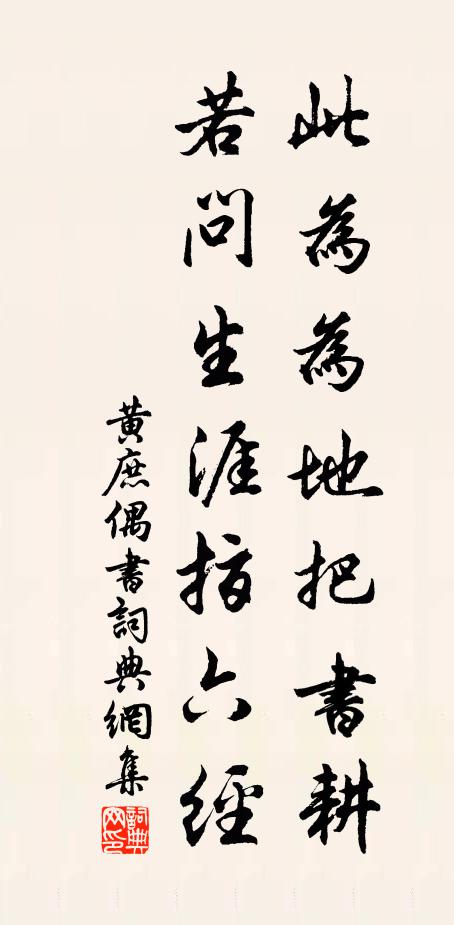 此為為地把書耕
若問生涯指六經
黃庶偶書詞典網集
詞典網印